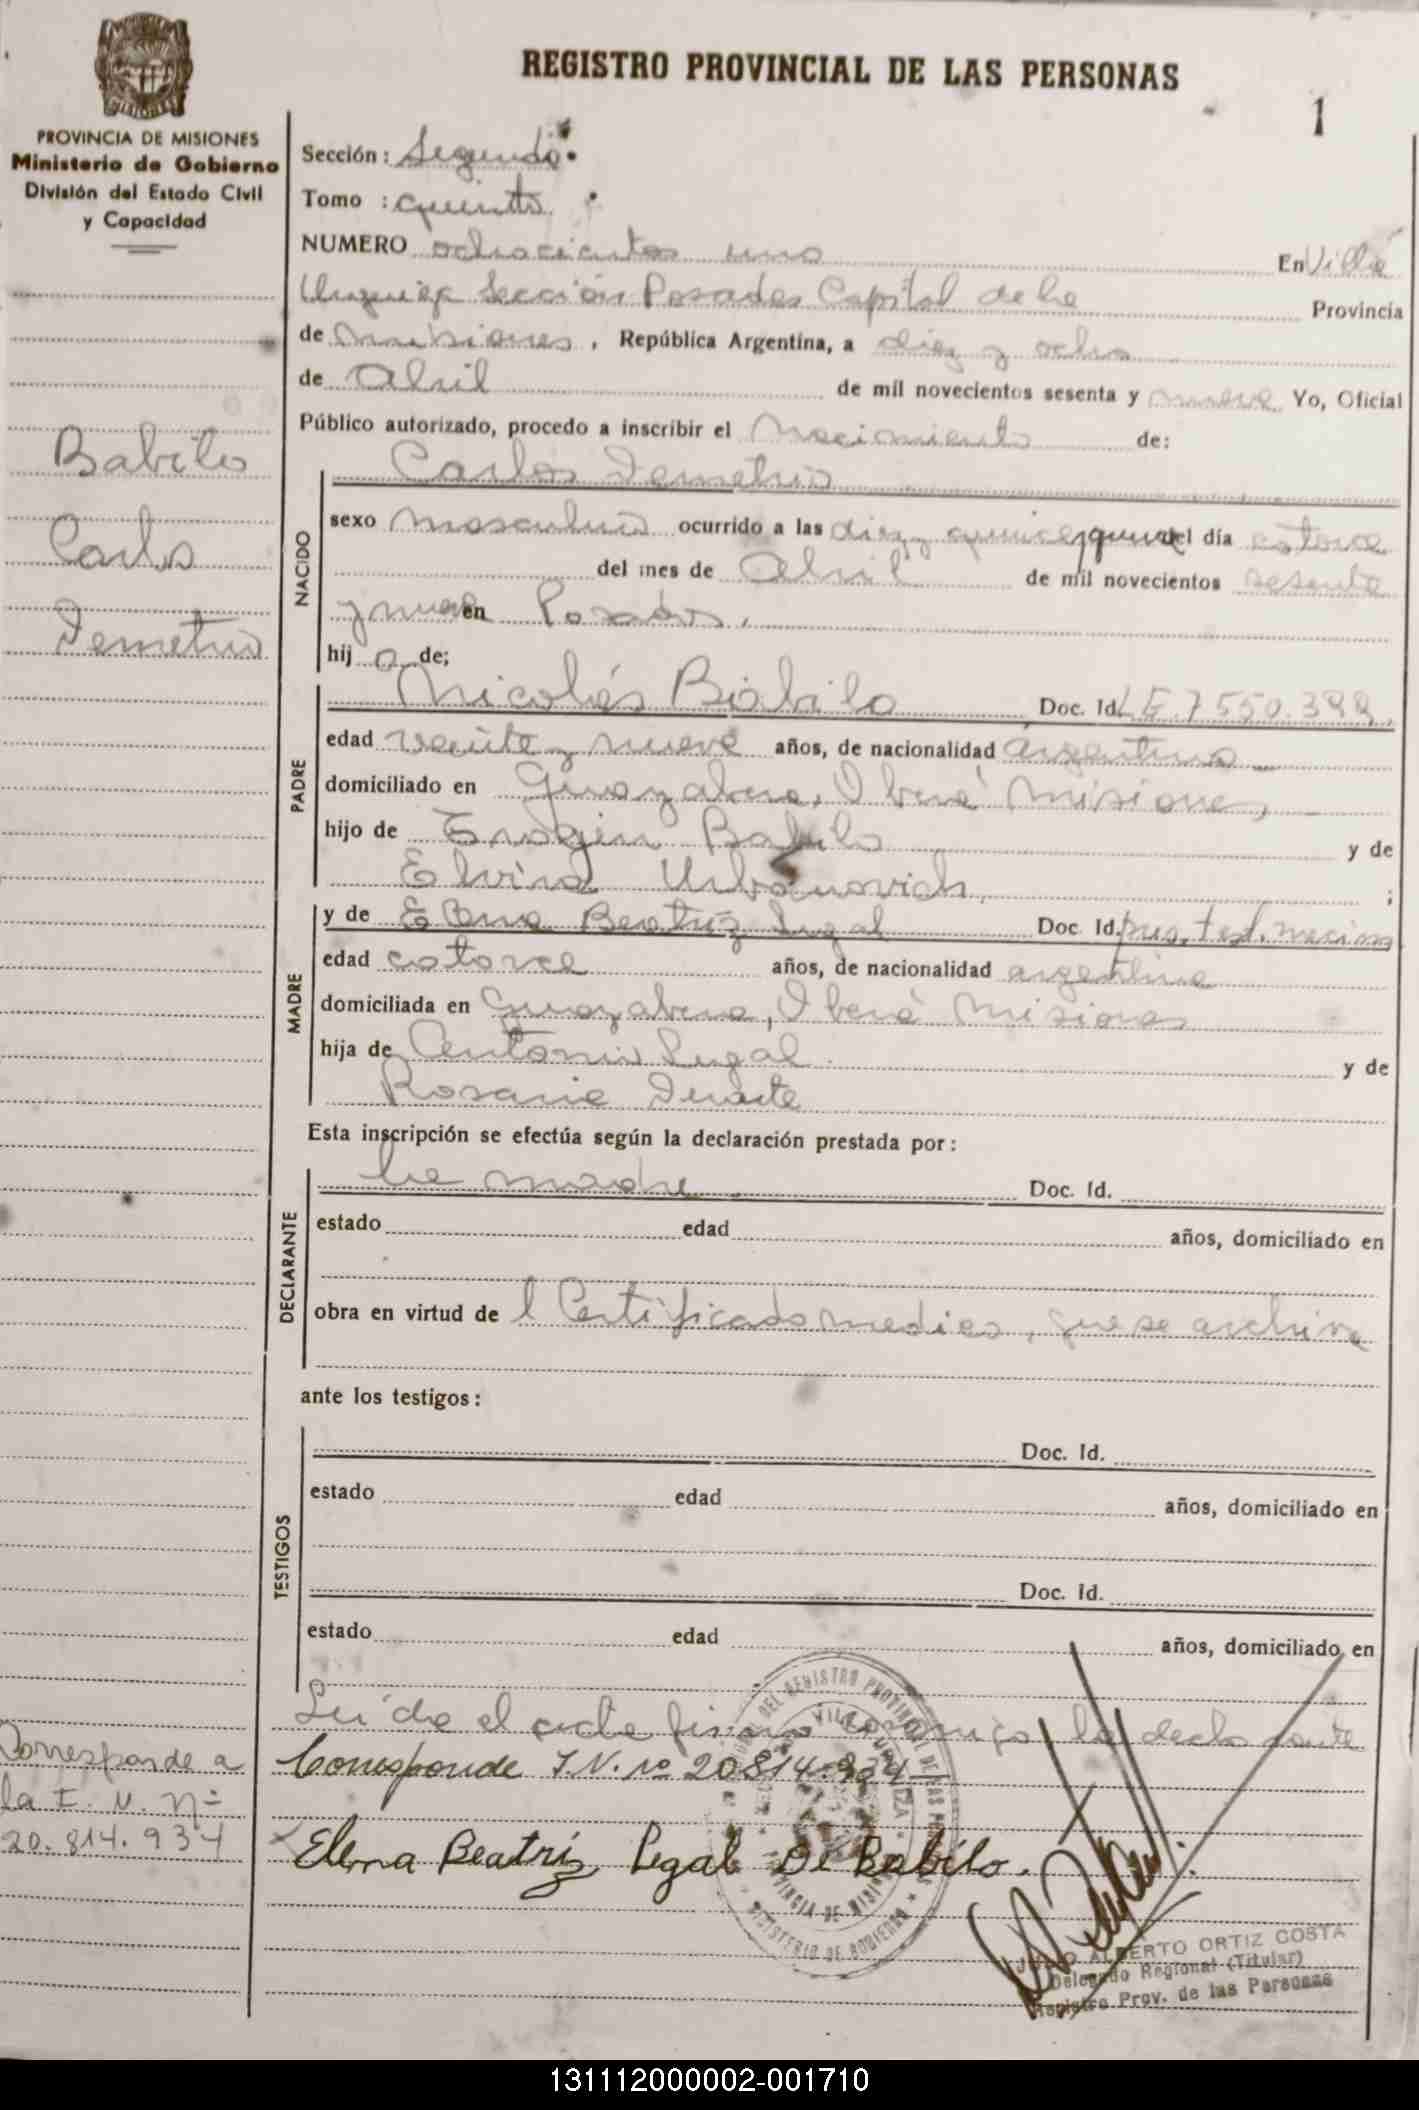 REGISTRO PROVINCIAL DE LAS PERSONAS
1
PROVINCIA DE MISIONES
Ministerio de Gobierno
División del Estado Civil
y Capacidad
Babilo
Carlos
Demetrio
Corresponde a
la F. N. nº
20.814.934
Sección: Segundo
Tomo : quinto
NUMERO ochocientos uno En Villa
Urquiza Sección Posadas Capital de la Provincia
de Misiones, República Argentina, a diez y ocho
de Abril de mil novecientos sesenta y nueve Yo, Oficial
Público autorizado, procedo a inscribir el Nacimiento de:
NACIDO
Carlos Demetrio
sexo masculino ocurrido a las diez y quince del día catorce
del mes de Abril de mil novecientos sesenta
y nueve en Posadas.
hij o de;
PADRE
Nicolás Babilo Doc. Id. LE 7550.
edad veinte y nueve años, de nacionalidad argentino
domiciliado en Guayabera, I berá Misiones,
hijo de Babilo y de
Elvira Urbanovich ;
MADRE
y de Elena Beatriz Legal Doc. Id.
edad catorce años, de nacionalidad argentina
domiciliada en Guayabera, I berá Misiones
hija de Antonio Legal y de
Rosario Duarte
Esta inscripción se efectúa según la declaración prestada por:
DECLARANTE
la madre Doc. Id.
estado edad años, domiciliado en
obra en virtud de l Certificado medico, que se archiva
ante los testigos:
TESTIGOS
Doc. Id.
estado edad años, domiciliado en
Doc. Id.
estado edad años, domiciliado en
Leída el acta firma conmigo la declarante
Corresponde F.N. nº 20814.934
Elena Beatríz Legal De Babilo.
JULIO ALBERTO ORTIZ COSTA
Delegado Regional (Titular)
Registro Prov. de las Personas
131112000002-001710